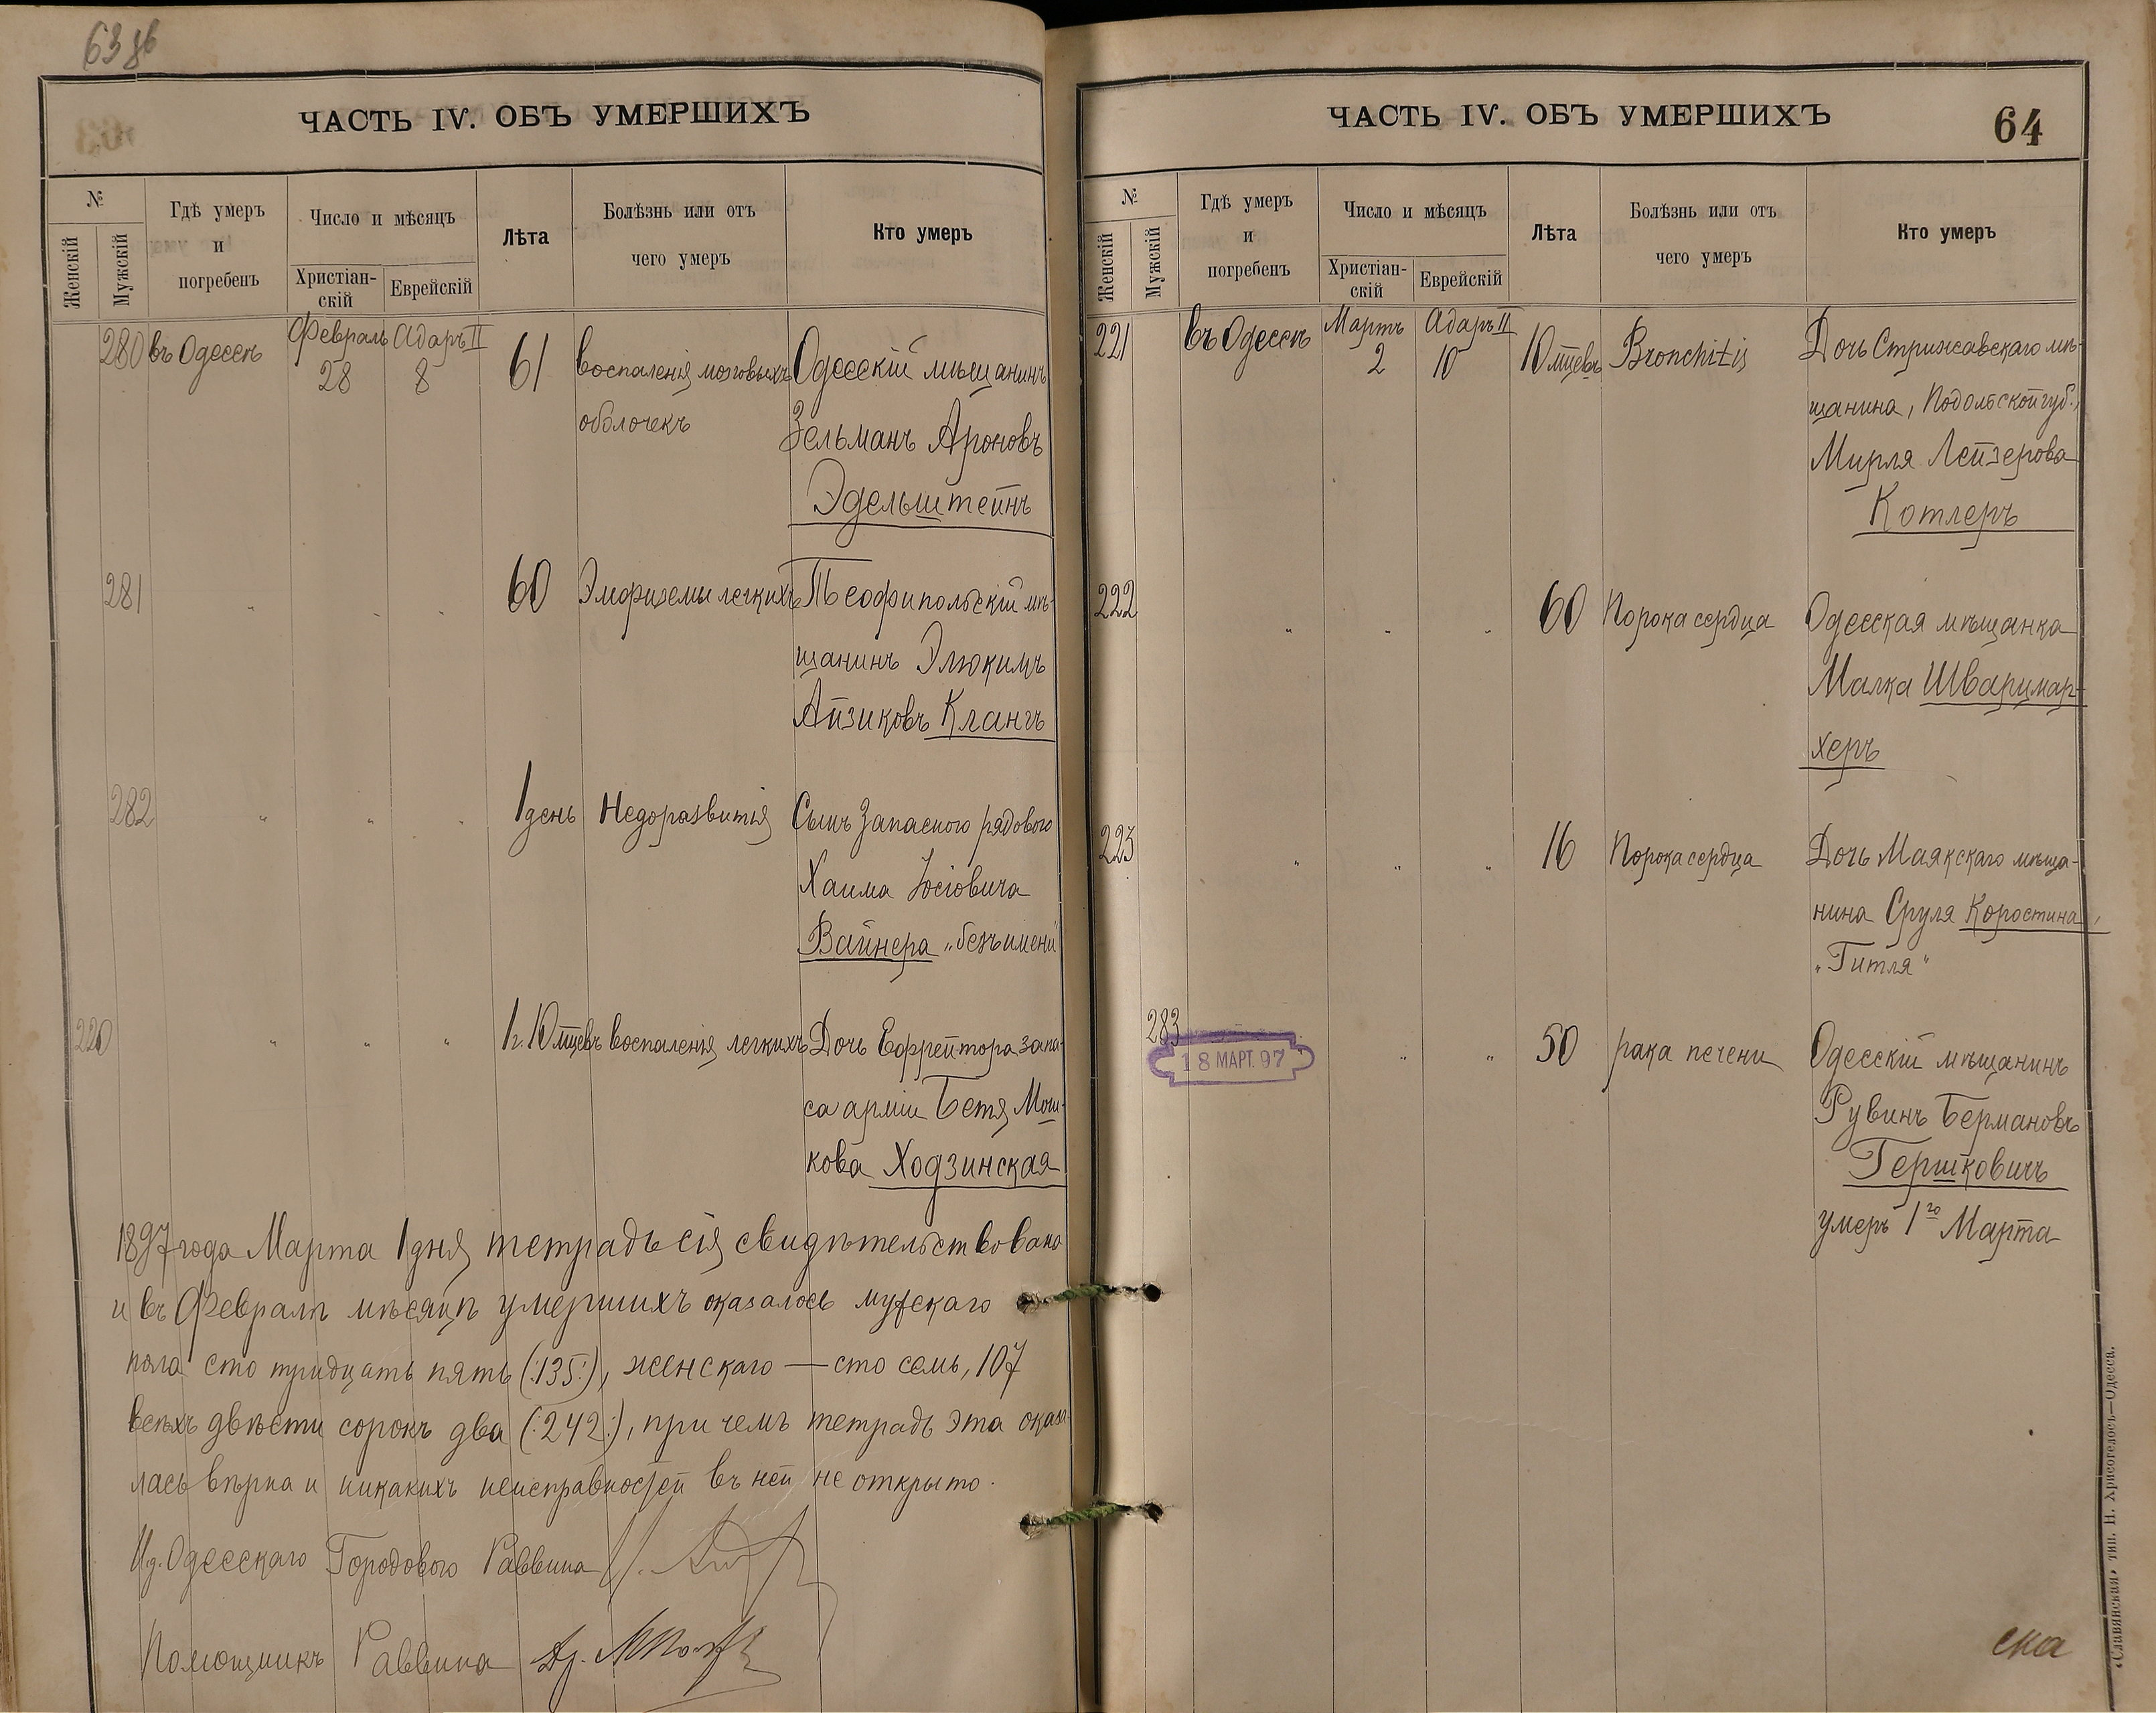 63 об
ЧАСТЬ IV. ОБЪ УМЕРШИХЪ
№
Женскій
Мужскій
Гдѣ умеръ
и
погребенъ
Число и мѣсяцъ
Христіан-
скій
Еврейскій
Лѣта
Болѣзнь или отъ
чего умеръ
Кто умеръ
280 въ Одессѣ Февраль 28 Адаръ II 8 61 воспаленія мозговыхъ Одесскій мѣщанинъ
оболочекъ Зельманъ Ароновъ
Эдельштейнъ
281 " " " 60 Эмфиземы легкихъ Теофипольскій мѣ-
щанинъ Элюкимъ
Айзиковъ Клангъ
282 " " " 1 день Недоразвитія Сынъ Запасного рядового
Хаима Іосіовича
Вайнера „безъ имени"
220 " " " 1 г. 10 мцевъ воспаленія легкихъ Дочь Ефрейтора запа-
са арміи Бетя Мош-
кова Ходзинская
1897 года Марта 1 дня тетрадь сія свидѣтельствована
и въ Февралѣ мѣсяцѣ умершихъ оказалось мужскаго
пола сто тридцать пять (:135:), женскаго — сто семь, 107
всѣхъ двѣсти сорокъ два (:242:), при чемъ тетрадь эта оказа-
лась вѣрна и никакихъ неисправностей въ ней не открыто.
И. д. Одесскаго Городового Раввина
Помощникъ Раввина
ЧАСТЬ IV. ОБЪ УМЕРШИХЪ
64
№
Женскій
Мужскій
Гдѣ умеръ
и
погребенъ
Число и мѣсяцъ
Христіан-
скій
Еврейскій
Лѣта
Болѣзнь или отъ
чего умеръ
Кто умеръ
221 въ Одессѣ Мартъ 2 Адаръ II 10 10 мцевъ Bronchitis Дочь Стрижавскаго мѣ-
щанина, Подольской губ.,
Мирля Лейзерова
Котлеръ
222 " " " 60 Порока сердца Одесская мѣщанка
Малка Шварцмар-
херъ
223 " " " 16 Порока сердца Дочь Маякскаго мѣща-
нина Сруля Коростина,
„Гитля"
283 " " " 50 рака печени Одесскій мѣщанинъ
18 МАРТ. 97
Рувинъ Бермановъ
Гершковичъ
умеръ 1го Марта
ска
«Славянская» тип. Н. Хрисогелосъ—Одесса.